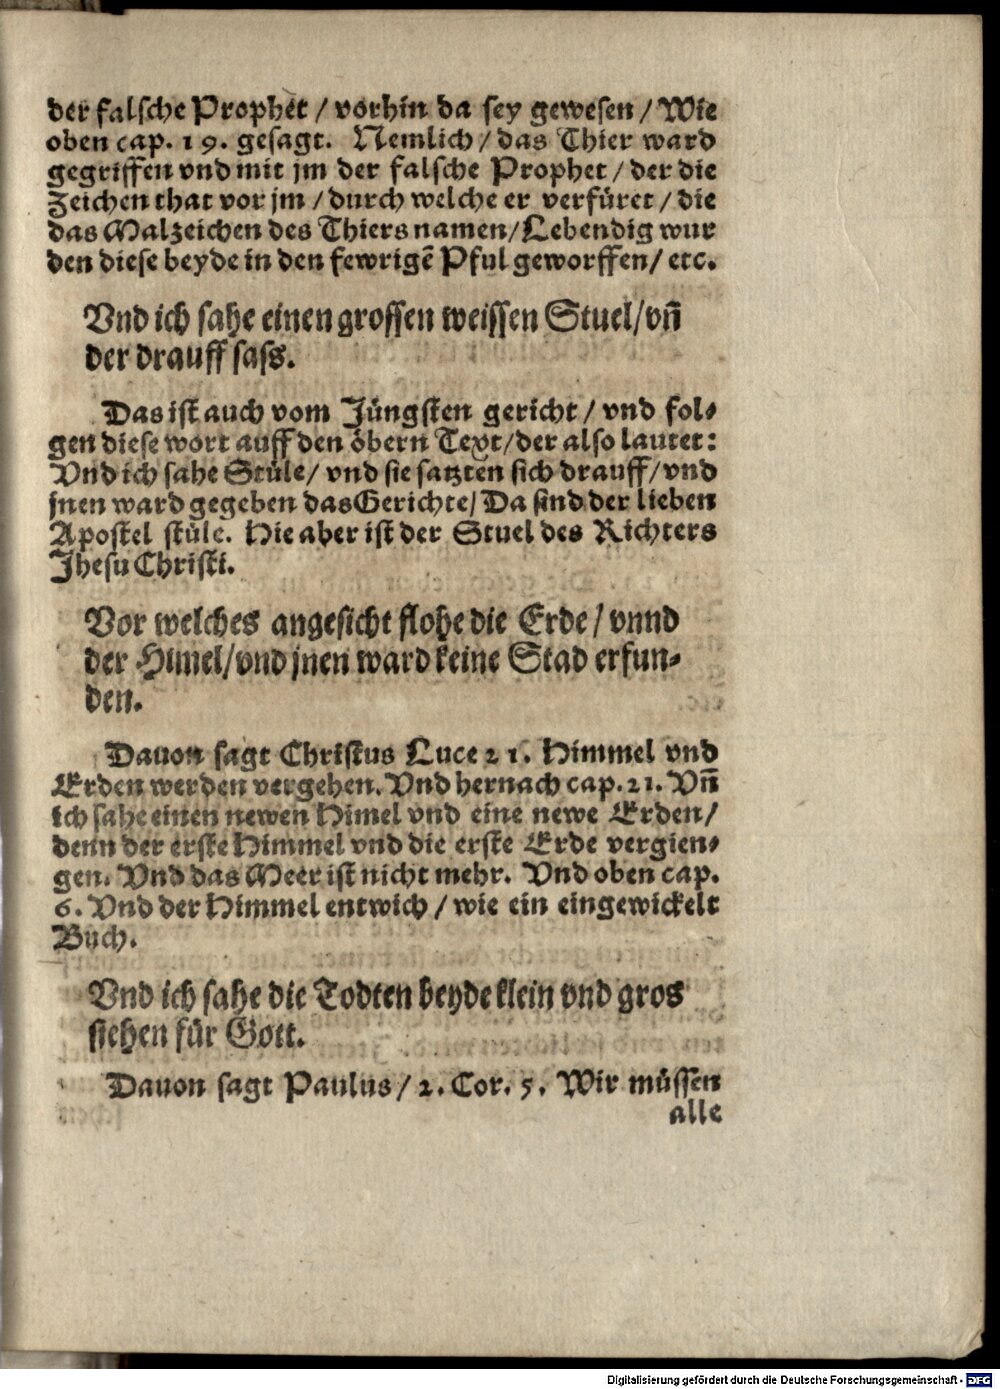 der falsche Prophet / vorhin da sey gewesen / Wie
oben cap. 19. gesagt. Nemlich / das Thier ward
gegriffen vnd mit jm der falsche Prophet / der die
Zeichen that vor jm / durch welche er verfüret / die
das Malzeichen des Thiers namen / Lebendig wur
den diese beyde in den fewrigē Pful geworffen / etc.
Vnd ich sahe einen grossen weissen Stuel / vñ
der drauff sass.
Das ist auch vom Jüngsten gericht / vnd fol⸗
gen diese wort auff den öbern Text / der also lautet:
Vnd ich sahe Stüle / vnd sie satzten sich drauff / vnd
jnen ward gegeben das Gerichte / Da sind der lieben
Apostel stüle. Hie aber ist der Stuel des Richters
Jhesu Christi.
Vor welches angesicht flohe die Erde / vnnd
der Himel / vnd jnen ward keine Stad erfun⸗
den.
Dauon sagt Christus Luce 21. Himmel vnd
Erden werden vergehen. Vnd hernach cap. 21. Vñ
ich sahe einen newen Himel vnd eine newe Erden /
denn der erste Himmel vnd die erste Erde vergien⸗
gen. Vnd das Meer ist nicht mehr. Vnd oben cap.
6. Vnd der Himmel entwich / wie ein eingewickelt
Buch.
Vnd ich sahe die Todten beyde klein vnd gros
stehen für Gott.
Dauon sagt Paulus / 2. Cor. 5. Wir müssen
alle
Digitalisierung gefördert durch die Deutsche Forschungsgemeinschaft - DFG